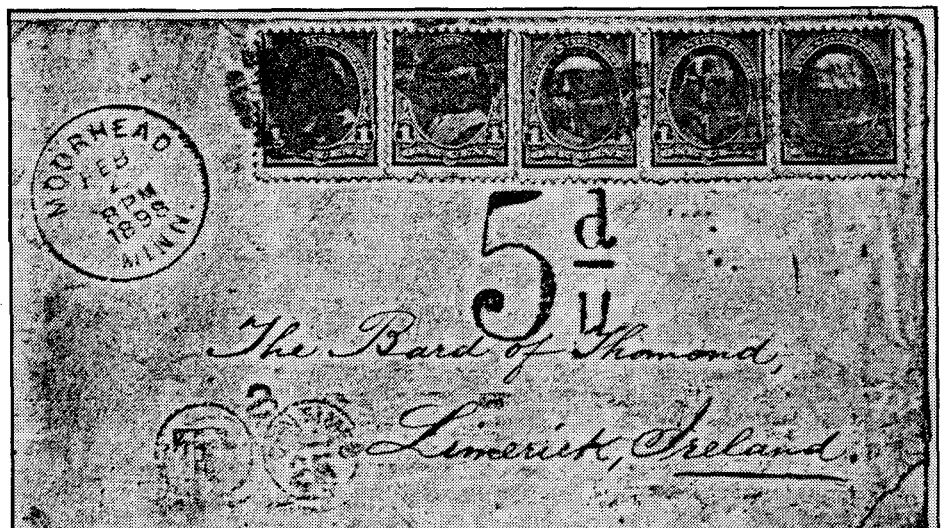 1 1 1 1 1
MOORHEAD
FEB
8 PM
1898
MINN.
5 d
U
The Bard of Thomond,
2
Limerick, Ireland.